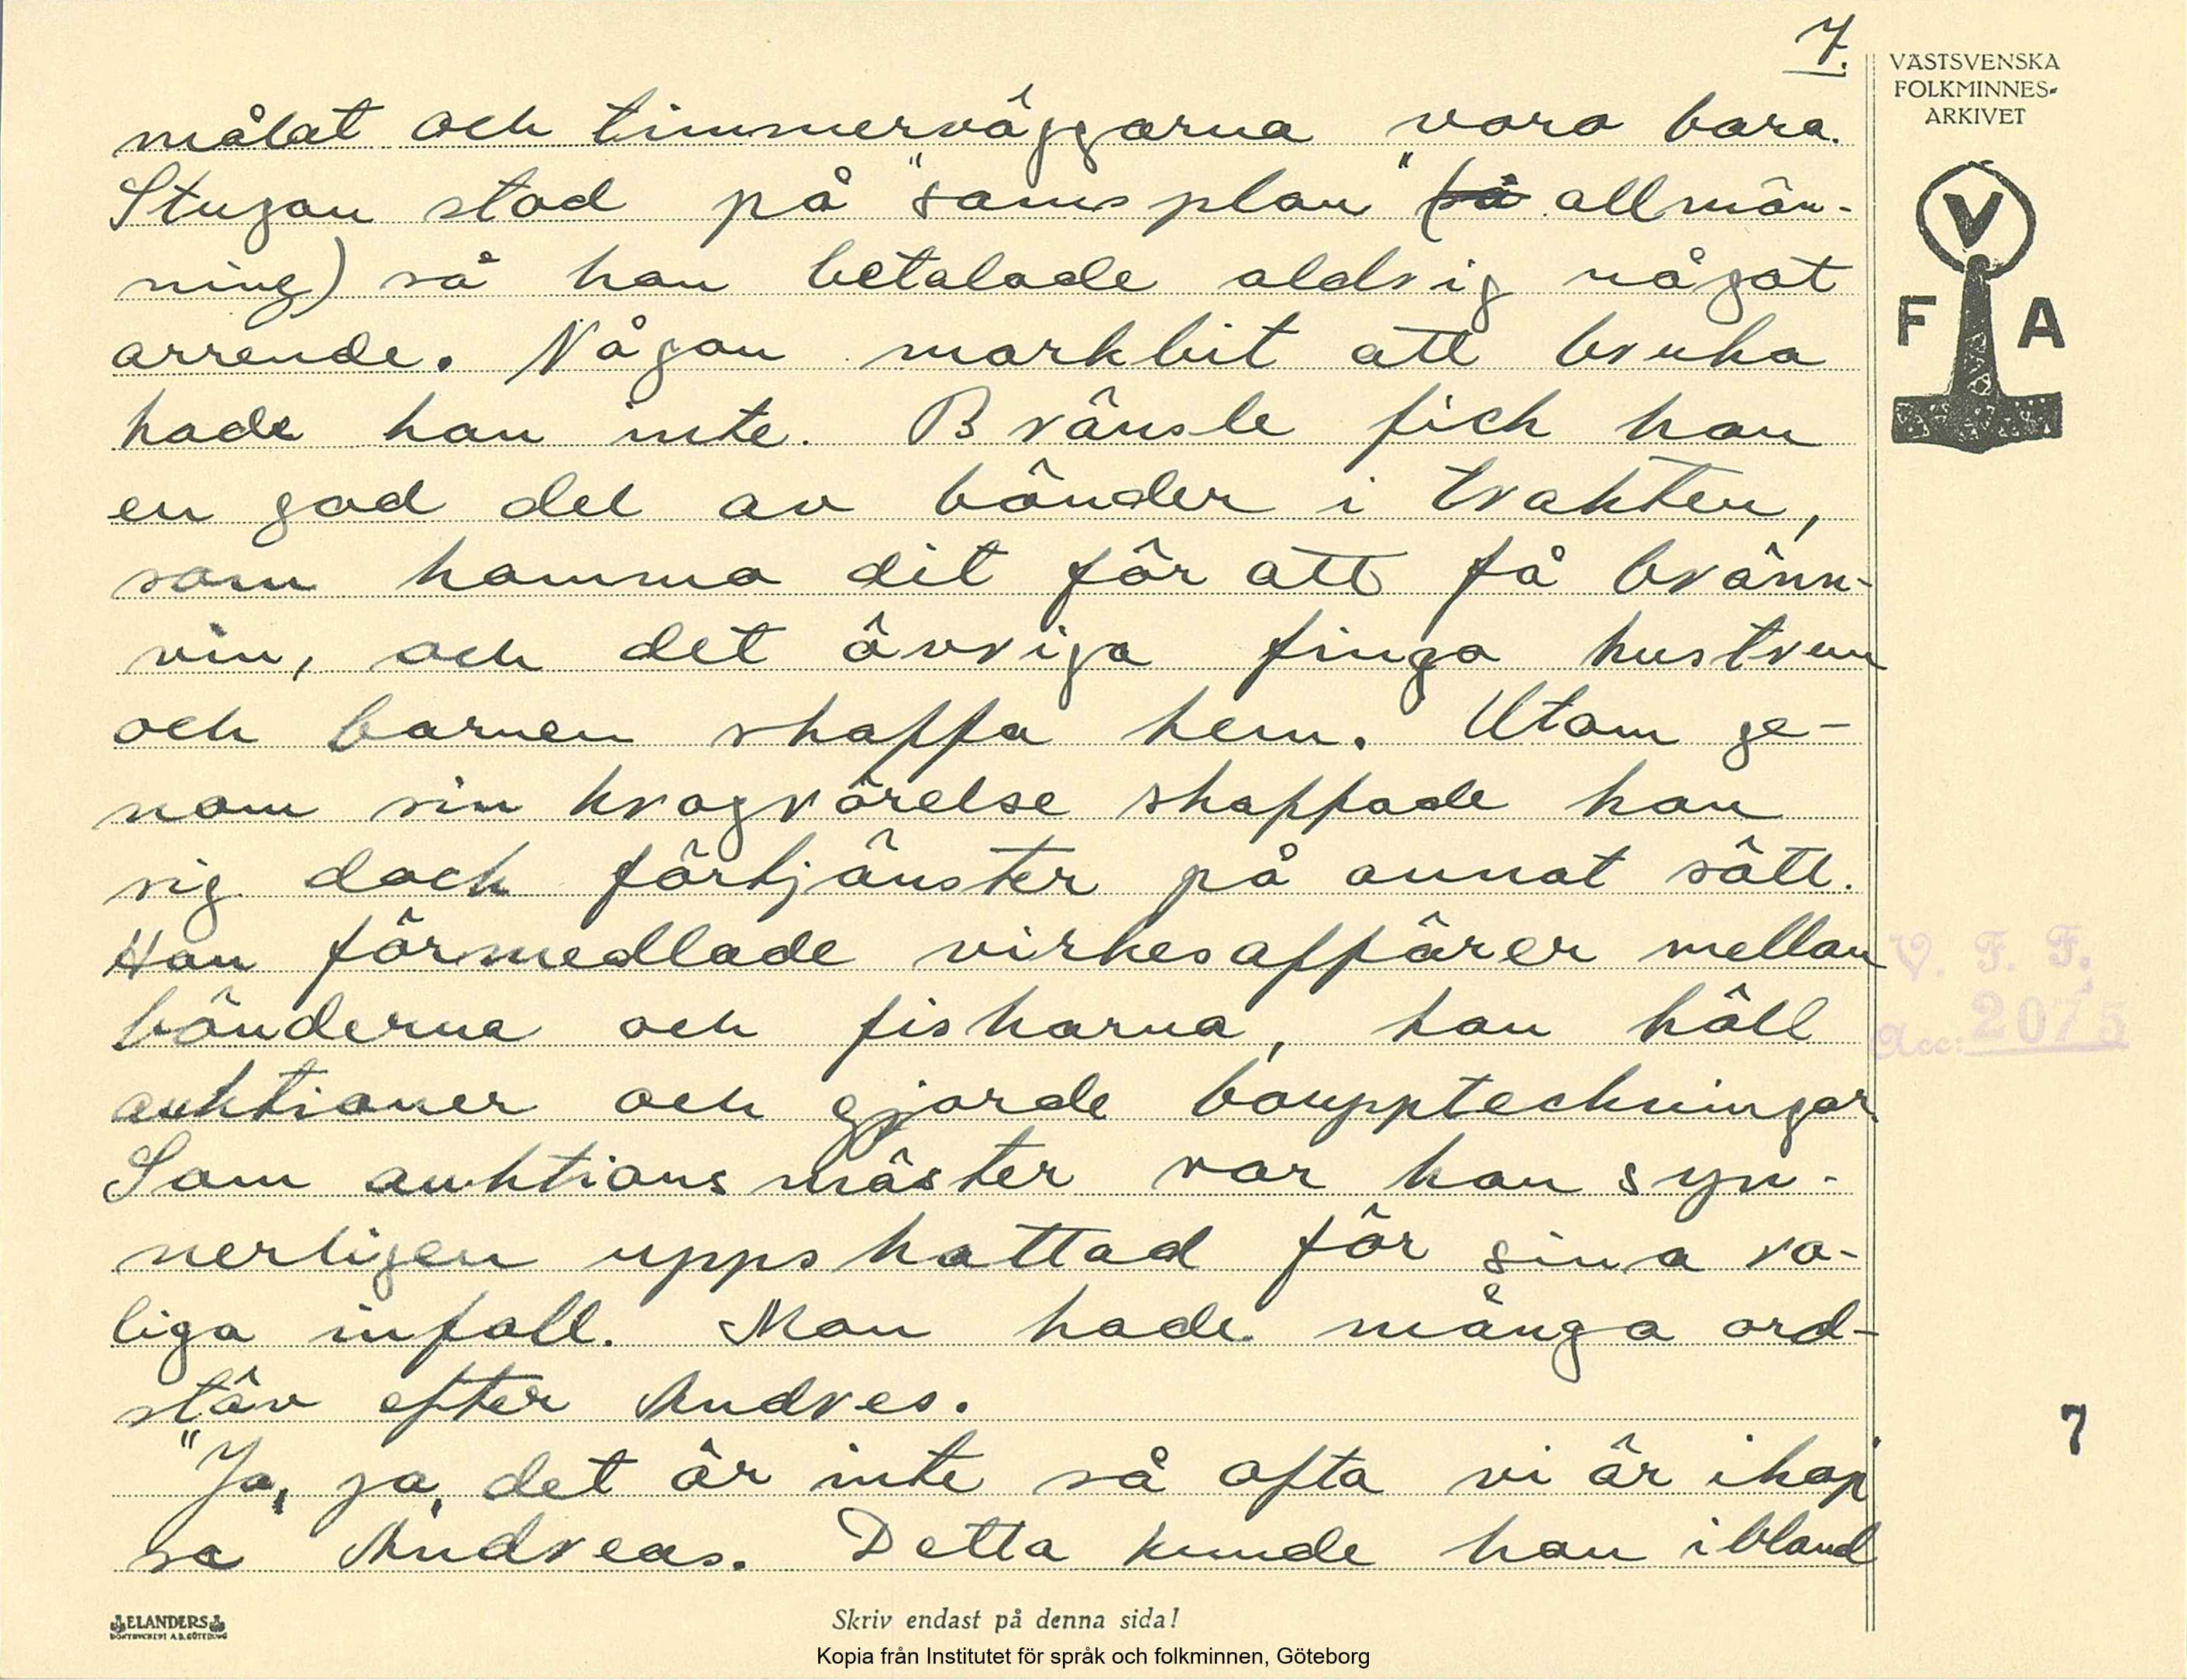 7.
VÄSTSVENSKA
FOLKMINNES-
ARKIVET
V
F A
målat och timmerväggarna voro bara.
Stugan stod på "samsplan" (så allmän-
ning) så han betalade aldrig något
arrende. Någon markbit att bruka
hade han inte. Bränsle fick han
en god del av bönder i trakten,
som komma dit för att få bränn-
vin, och det övriga finga hustrun
och barnen skaffa hem. Utom ge-
nom sin krogrörelse skaffade han
sig dock förtjänster på annat sätt.
Han förmedlade virkesaffärer mellan
bönderna och fiskarna, han höll
auktioner och gjorde bouppteckningar.
Som auktionsmäster var han syn-
nerligen uppskattad för sina ro-
liga infall. Man hade många ord-
stäv efter Andres.
"Ja, ja, det är inte så ofta vi är ihop"
sa Andreas. Detta kunde han ibland
V. F. F.
Acc: 2075
7
ELANDERS
BOKTRYCKERI A.B. GÖTEBORG
Skriv endast på denna sida!
Kopia från Institutet för språk och folkminnen, Göteborg